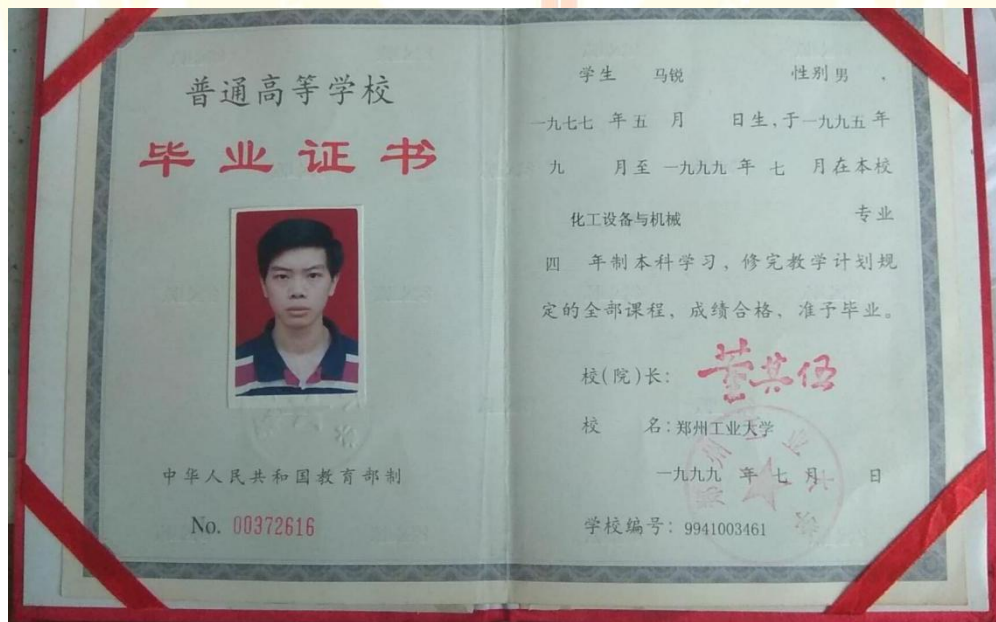 普通高等学校
毕业证书
中华人民共和国教育部制
No. 00372616
学生 马锐 性别 男 ,
一九七七 年 五 月 日生,于 一九九五 年
九 月至 一九九九 年 七 月在本校
化工设备与机械 专业
四 年制本科学习,修完教学计划规
定的全部课程,成绩合格,准予毕业。
校(院)长: 董其伍
校 名: 郑州工业大学
一九九九 年 七 月 日
学校编号: 9941003461